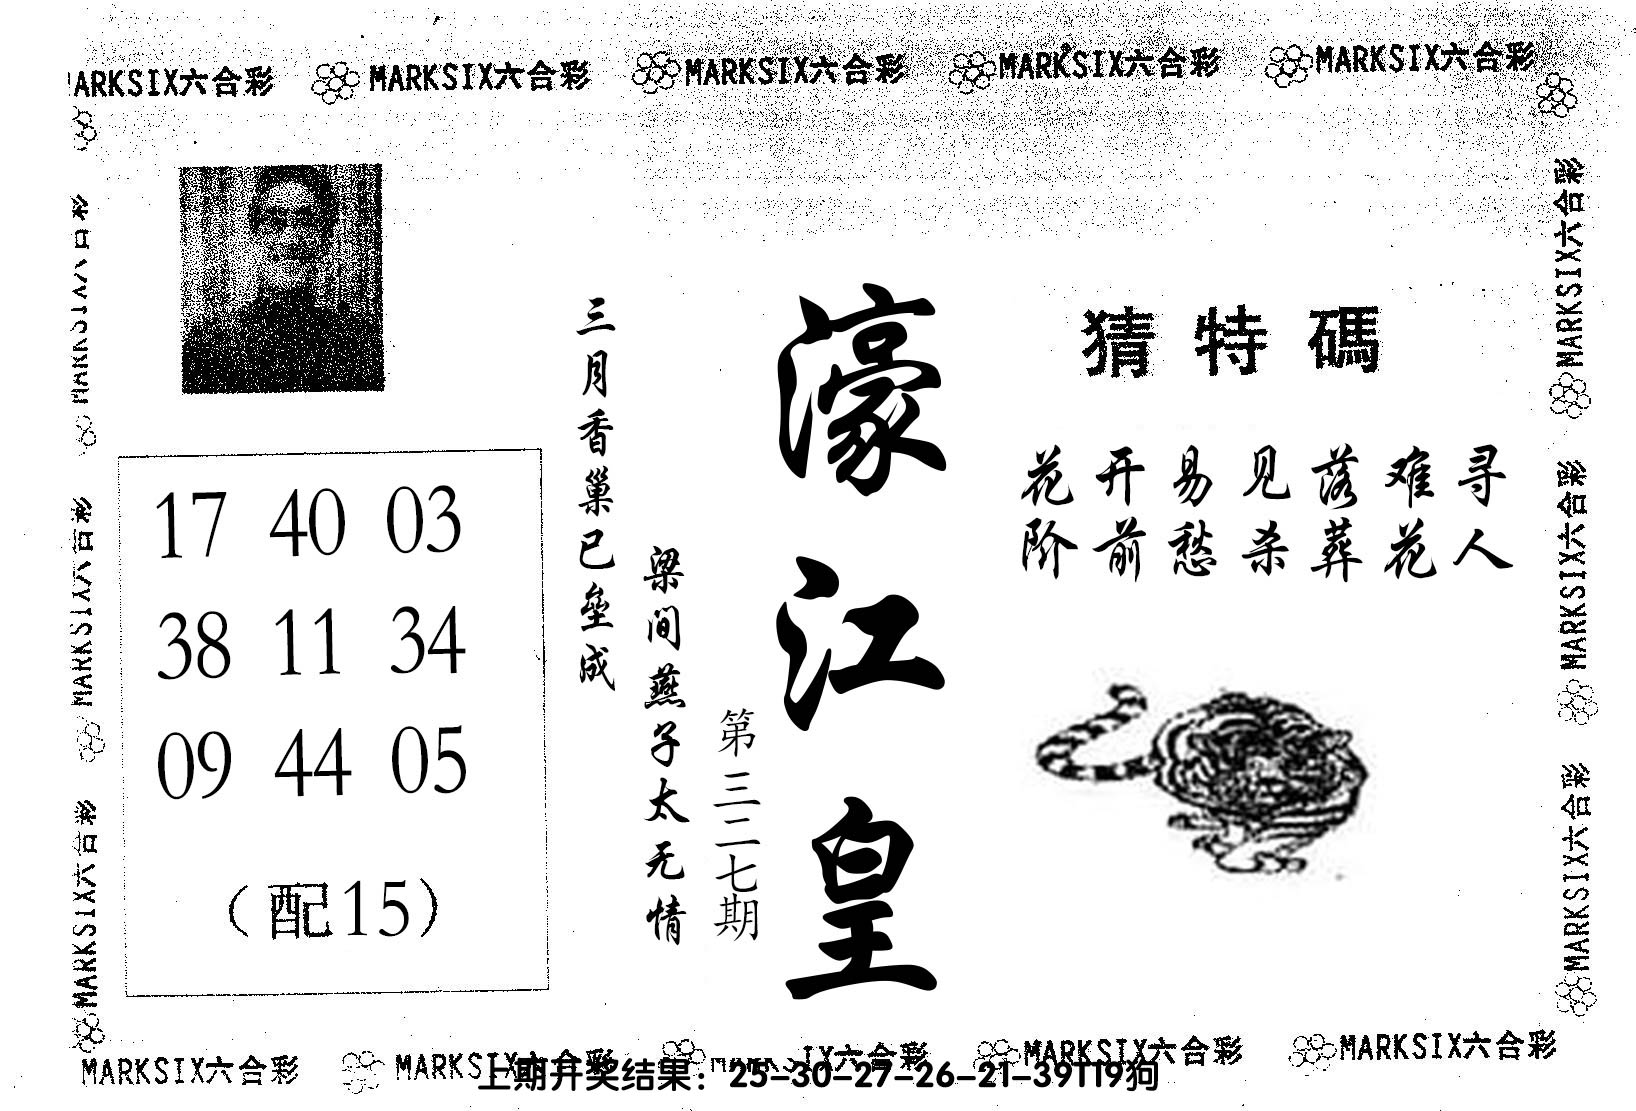 MARKSIX六合彩 MARKSIX六合彩 MARKSIX六合彩 MARKSIX六合彩
MARKSIX六合彩
MARKSIX六合彩
MARKSIX六合彩
MARKSIX六合彩
MARKSIX六合彩
猜特碼
花开易见落难寻
阶前愁杀葬花人
濠江皇
第三二七期
三月香巢已垒成
梁间燕子太无情
17 40 03
38 11 34
09 44 05
（配15）
MARKSIX六合彩 MARKSIX六合彩 MARKSIX六合彩 MARKSIX六合彩
上期开奖结果：25-30-27-26-21-39T19狗